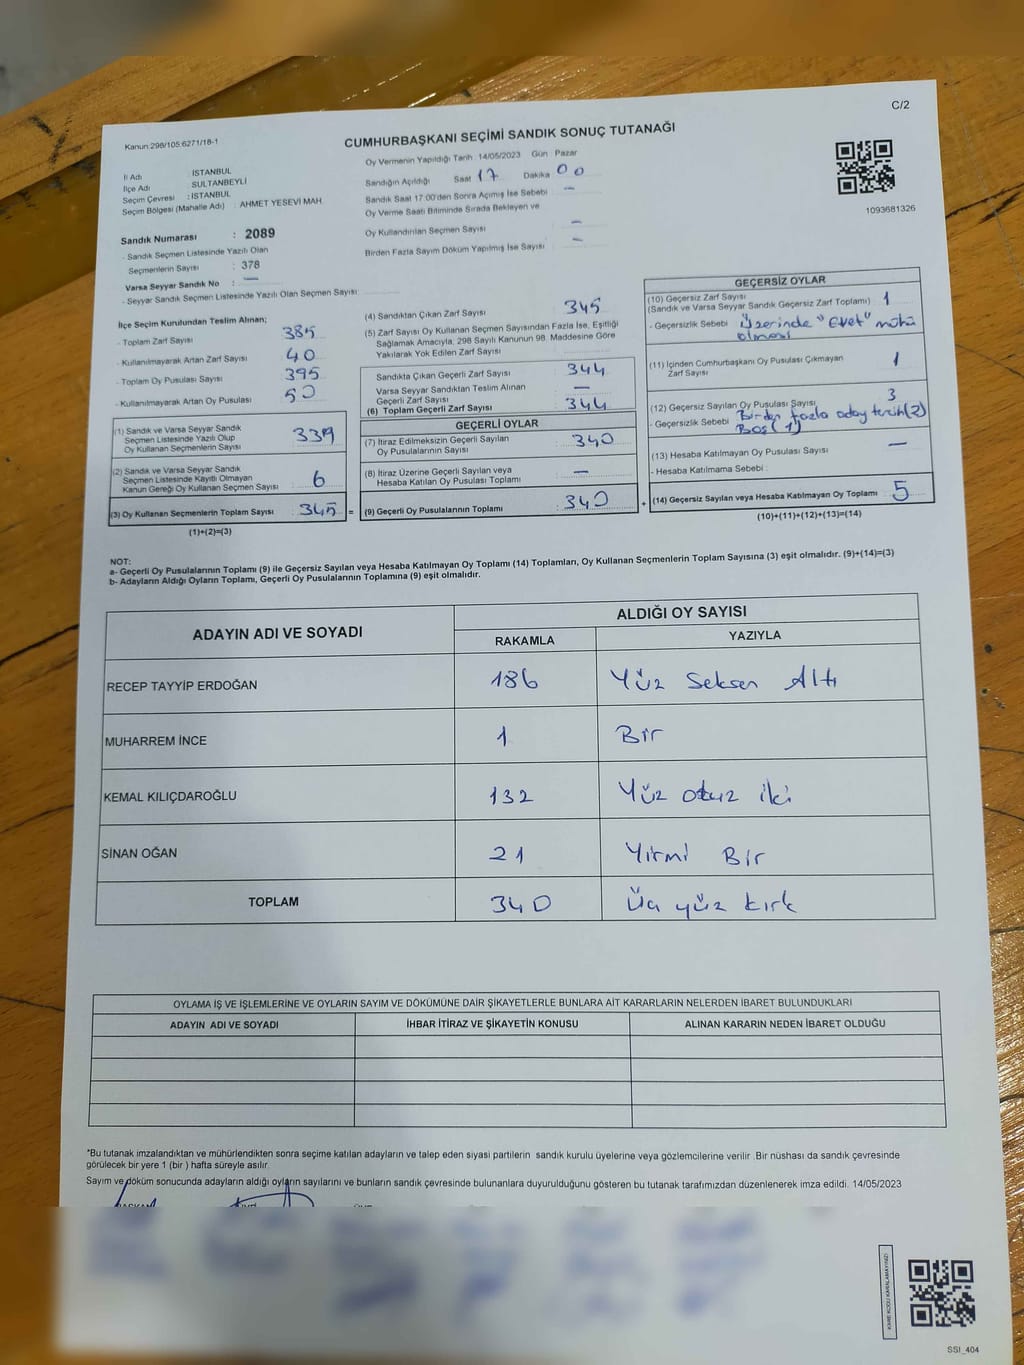 C/2
Kanun:298/105:6271/18-1
CUMHURBAŞKANI SEÇİMİ SANDIK SONUÇ TUTANAĞI
Oy Vermenin Yapıldığı Tarih : 14/05/2023 Gün Pazar
İl Adı : İSTANBUL
İlçe Adı : SULTANBEYLİ
Seçim Çevresi : İSTANBUL
Seçim Bölgesi (Mahalle Adı) : AHMET YESEVİ MAH.
Sandığın Açıldığı Saat 17 Dakika 00
Sandık Saat 17:00'den Sonra Açımış İse Sebebi —
Oy Verme Saati Bitiminde Sırada Bekleyen ve
Oy Kullandırılan Seçmen Sayısı —
Birden Fazla Sayım Döküm Yapılmış İse Sayısı —
1093681326
Sandık Numarası : 2089
- Sandık Seçmen Listesinde Yazılı Olan
Seçmenlerin Sayısı : 378
Varsa Seyyar Sandık No : —
- Seyyar Sandık Seçmen Listesinde Yazılı Olan Seçmen Sayısı:
İlçe Seçim Kurulundan Teslim Alınan;
- Toplam Zarf Sayısı : 385
- Kullanılmayarak Artan Zarf Sayısı : 40
- Toplam Oy Pusulası Sayısı : 395
- Kullanılmayarak Artan Oy Pusulası : 50
(1) Sandık ve Varsa Seyyar Sandık
Seçmen Listesinde Yazılı Olup
Oy Kullanan Seçmenlerin Sayısı : 339
(2) Sandık ve Varsa Seyyar Sandık
Seçmen Listesinde Kayıtlı Olmayan
Kanun Gereği Oy Kullanan Seçmen Sayısı : 6
(3) Oy Kullanan Seçmenlerin Toplam Sayısı : 345 =
(1)+(2)=(3)
(4) Sandıktan Çıkan Zarf Sayısı : 345
(5) Zarf Sayısı Oy Kullanan Seçmen Sayısından Fazla İse, Eşitliği
Sağlamak Amacıyla, 298 Sayılı Kanunun 98. Maddesine Göre
Yakılarak Yok Edilen Zarf Sayısı :
Sandıkta Çıkan Geçerli Zarf Sayısı : 344
Varsa Seyyar Sandıktan Teslim Alınan
Geçerli Zarf Sayısı : —
(6) Toplam Geçerli Zarf Sayısı : 344
GEÇERLİ OYLAR
(7) İtiraz Edilmeksizin Geçerli Sayılan
Oy Pusulalarının Sayısı : 340
(8) İtiraz Üzerine Geçerli Sayılan veya
Hesaba Katılan Oy Pusulası Toplamı : —
(9) Geçerli Oy Pusulalarının Toplamı : 340 +
GEÇERSİZ OYLAR
(10) Geçersiz Zarf Sayısı : 1
(Sandık ve Varsa Seyyar Sandık Geçersiz Zarf Toplamı)
- Geçersizlik Sebebi : Üzerinde "Evet" mührü
olması
(11) İçinden Cumhurbaşkanı Oy Pusulası Çıkmayan
Zarf Sayısı : 1
(12) Geçersiz Sayılan Oy Pusulası Sayısı : 3
- Geçersizlik Sebebi : Birden fazla aday tercih(2)
Boş (1)
(13) Hesaba Katılmayan Oy Pusulası Sayısı : —
- Hesaba Katılmama Sebebi :
(14) Geçersiz Sayılan veya Hesaba Katılmayan Oy Toplamı : 5
(10)+(11)+(12)+(13)=(14)
NOT:
a- Geçerli Oy Pusulalarının Toplamı (9) ile Geçersiz Sayılan veya Hesaba Katılmayan Oy Toplamı (14) Toplamları, Oy Kullanan Seçmenlerin Toplam Sayısına (3) eşit olmalıdır. (9)+(14)=(3)
b- Adayların Aldığı Oyların Toplamı, Geçerli Oy Pusulalarının Toplamına (9) eşit olmalıdır.
ADAYIN ADI VE SOYADI ALDIĞI OY SAYISI
RAKAMLA YAZIYLA
RECEP TAYYİP ERDOĞAN 186 Yüz Seksen Altı
MUHARREM İNCE 1 Bir
KEMAL KILIÇDAROĞLU 132 Yüz otuz iki
SİNAN OĞAN 21 Yirmi Bir
TOPLAM 340 Üç yüz kırk
OYLAMA İŞ VE İŞLEMLERİNE VE OYLARIN SAYIM VE DÖKÜMÜNE DAİR ŞİKAYETLERLE BUNLARA AİT KARARLARIN NELERDEN İBARET BULUNDUKLARI
ADAYIN ADI VE SOYADI İHBAR İTİRAZ VE ŞİKAYETİN KONUSU ALINAN KARARIN NEDEN İBARET OLDUĞU
*Bu tutanak imzalandıktan ve mühürlendikten sonra seçime katılan adayların ve talep eden siyasi partilerin sandık kurulu üyelerine veya gözlemcilerine verilir .Bir nüshası da sandık çevresinde
görülecek bir yere 1 (bir ) hafta süreyle asılır.
Sayım ve döküm sonucunda adayların aldığı oyların sayılarını ve bunların sandık çevresinde bulunanlara duyurulduğunu gösteren bu tutanak tarafımızdan düzenlenerek imza edildi. 14/05/2023
KARE KODU KARALAMAYINIZ!
SSI_404